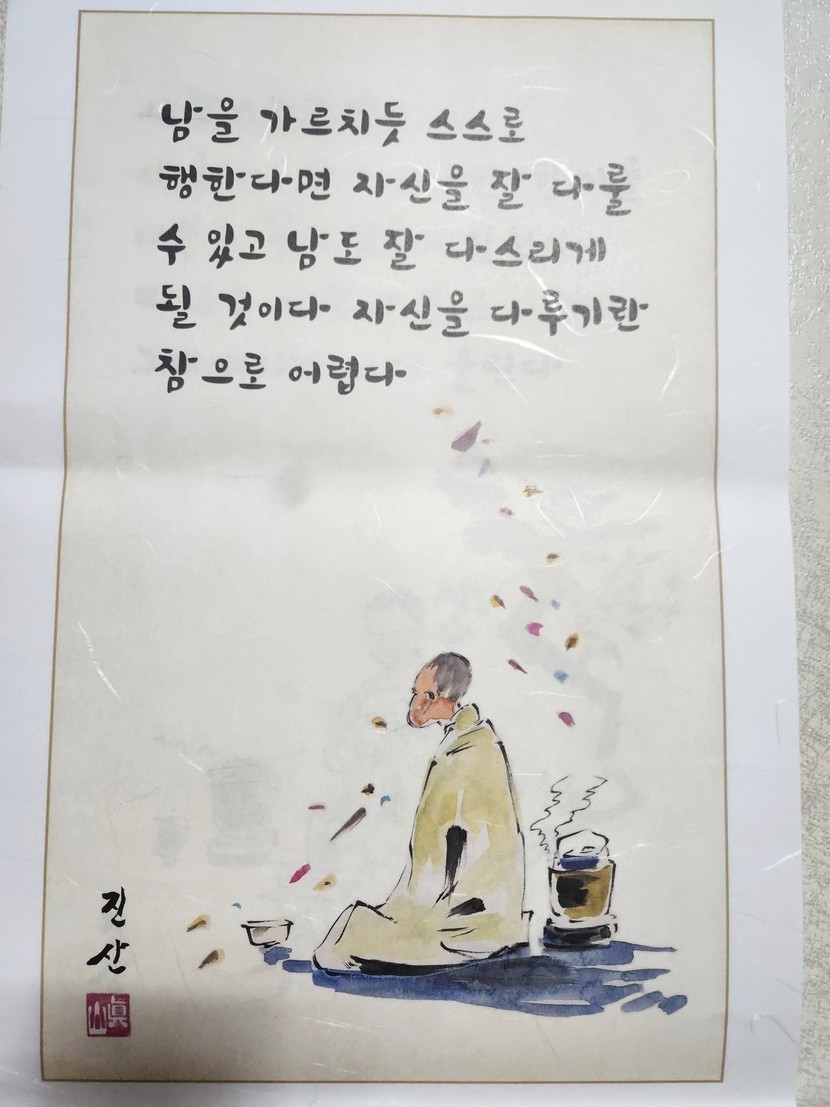 남을 가르치듯 스스로
행한다면 자신을 잘 다룰
수 있고 남도 잘 다스리게
될 것이다 자신을 다루기란
참으로 어렵다
진
산
眞山